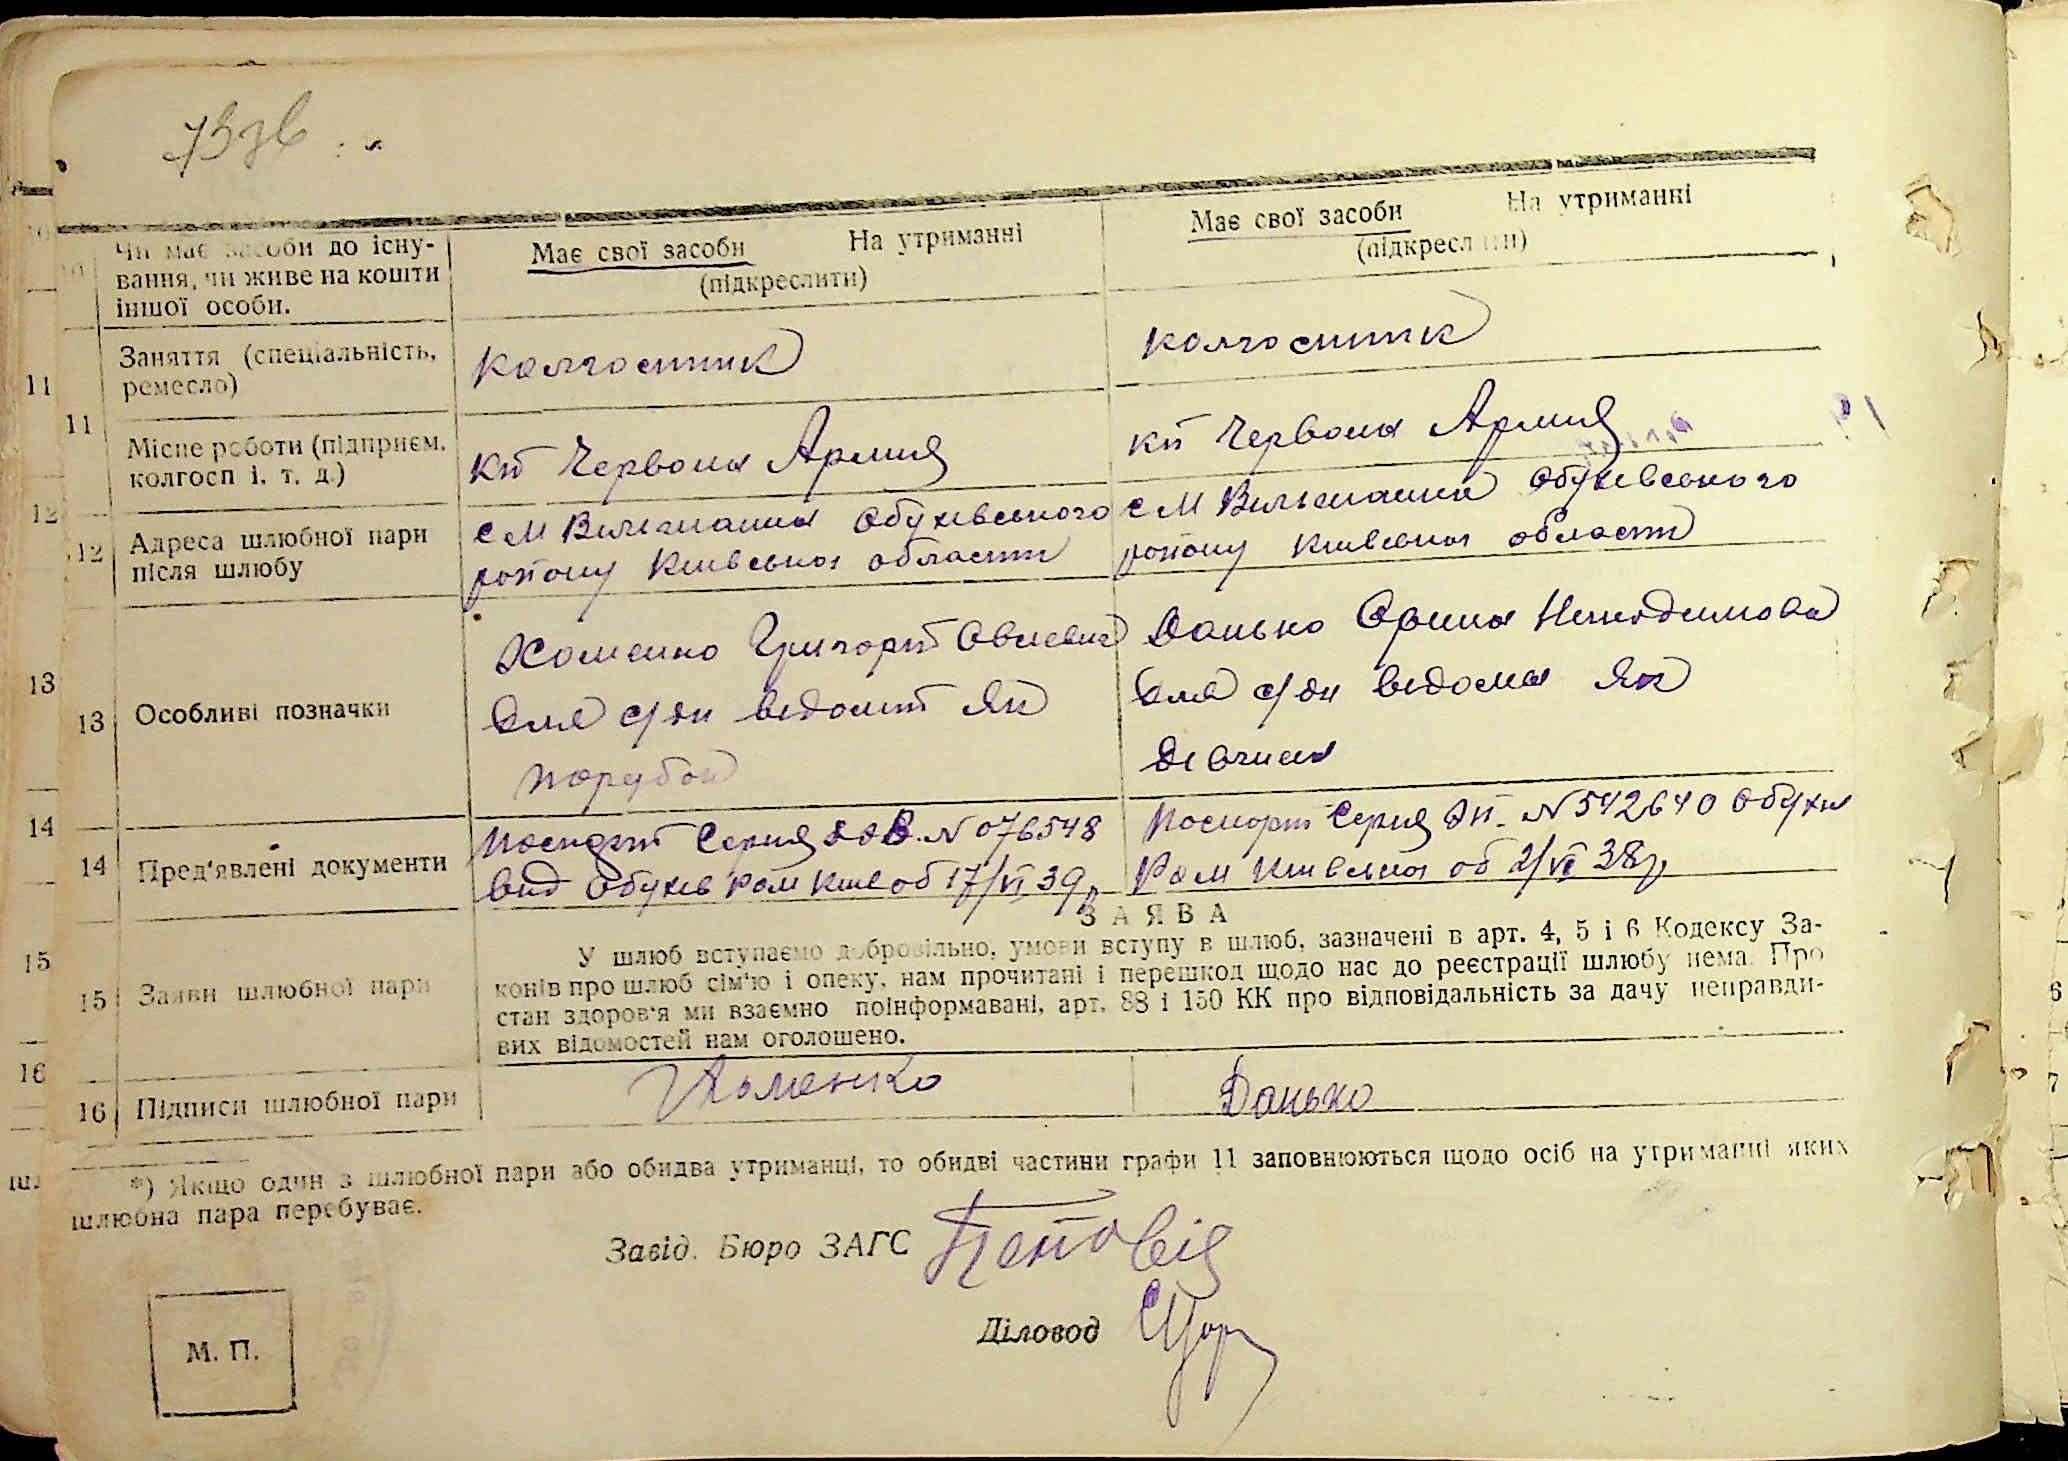 10 Чи має засоби до існу-
вання, чи живе на кошти
іншої особи.
Має свої засоби На утриманні
(підкреслити)
Має свої засоби На утриманні
(підкреслити)
11 Заняття (спеціальність,
ремесло)
колгоспник
колгоспник
11
Місце роботи (підприєм.
колгосп і. т. д.)
кп Червона Армия
кп Червона Армия
12 Адреса шлюбної пари
після шлюбу
с М Вильшанка Обухівського
району Київської области
с М Вильшанка Обухівського
району Київської области
13 Особливі позначки
Хоменко Григорій
для с/ди відомий як
парубок
Данько Орина
для с/ди відома як
дівчина
14 Пред'явлені документи
Паспорт Серия № 076548
вид Обухів 17/VI 39р
Паспорт Серия № 542640 Обухів
2/VI 38р
ЗАЯВА
15 Заяви шлюбної пари
У шлюб вступаємо добровільно, умови вступу в шлюб, зазначені в арт. 4, 5 і 6 Кодексу За-
конів про шлюб сім'ю і опеку, нам прочитані і перешкод щодо нас до реєстрації шлюбу нема. Про
стан здоров'я ми взаємно поінформавані, арт. 88 і 150 КК про відповідальність за дачу неправди-
вих відомостей нам оголошено.
16 Підписи шлюбної пари
Хоменко
Данько
*) Якщо один з шлюбної пари або обидва утриманці, то обидві частини графи 11 заповнюються щодо осіб на утриманні яких
шлюбна пара перебуває.
Завід. Бюро ЗАГС
Діловод
М. П.